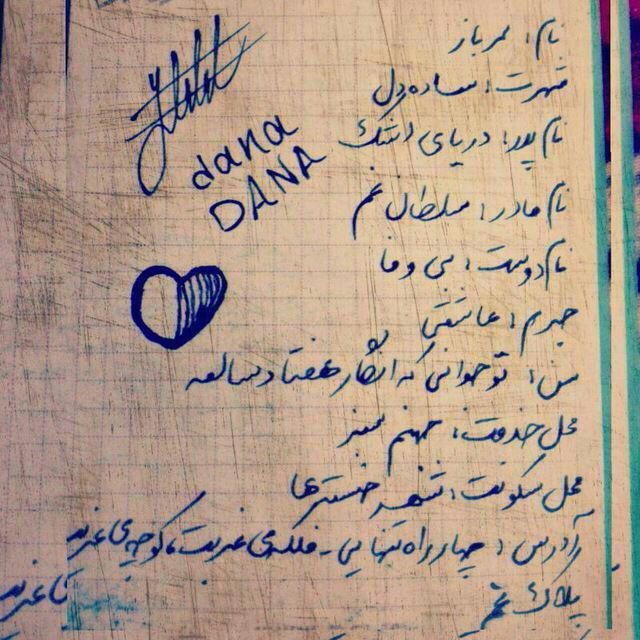 نام: سرباز
شهرت: ساده دل
نام پدر: دریای اشک
نام مادر: سلطان غم
نام دوست: بی وفا
جرم: عاشقی
سن: نوجوانی که انگار هفتاد سالمه
محل خدمت: جهنم سبز
محل سکونت: شهر خسته‌ها
آدرس: چهار راه تنهایی - فلکه‌ی غربت، کوچه‌ی غریب
پلاک غم
dana
DANA